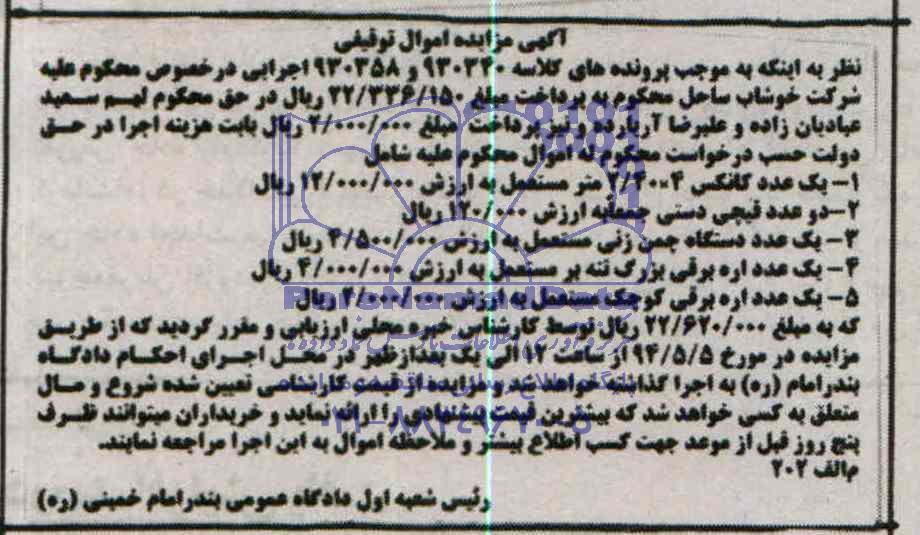 آگهی مزایده اموال توقیفی
نظر به اینکه به موجب پرونده های کلاسه ۹۳۰۳۴۰ و ۹۳۰۳۵۸ اجرایی درخصوص محکوم علیه
شرکت خوشاب ساحل محکوم به پرداخت مبلغ ۲۲/۳۳۶/۱۵۰ ریال در حق محکوم لهم سعید
عبادیان زاده و علیرضا آریازده و نیز پرداخت مبلغ ۲/۰۰۰/۰۰۰ ریال بابت هزینه اجرا در حق
دولت حسب درخواست محکوم له اموال محکوم علیه شامل
۱- یک عدد کانکس ۴×۲/۴۰ متر مستعمل به ارزش ۱۲/۰۰۰/۰۰۰ ریال
۲-دو عدد قیچی دستی جمعاً به ارزش ۱۲۰/۰۰۰ ریال
۳- یک عدد دستگاه چمن زنی مستعمل به ارزش ۴/۵۰۰/۰۰۰ ریال
۴- یک عدد اره برقی بزرگ تنه بر مستعمل به ارزش ۴/۰۰۰/۰۰۰ ریال
۵- یک عدد اره برقی کوچک مستعمل به ارزش ۲/۰۰۰/۰۰۰ ریال
که به مبلغ ۲۲/۶۲۰/۰۰۰ ریال توسط کارشناس خبره محلی ارزیابی و مقرر گردید که از طریق
مزایده در مورخ ۹۴/۵/۵ از ساعت ۱۲ الی یک بعدازظهر در محل اجرای احکام دادگاه
بندرامام (ره) به اجرا گذاشته خواهد شد و مزایده از قیمت کارشناسی تعیین شده شروع و مال
متعلق به کسی خواهد شد که بیشترین قیمت پیشنهادی را ارائه نماید و خریداران میتوانند ظرف
پنج روز قبل از موعد جهت کسب اطلاع بیشتر و ملاحظه اموال به این اجرا مراجعه نمایند.
م الف ۲۰۲
رئیس شعبه اول دادگاه عمومی بندرامام خمینی (ره)
ParsNamadData